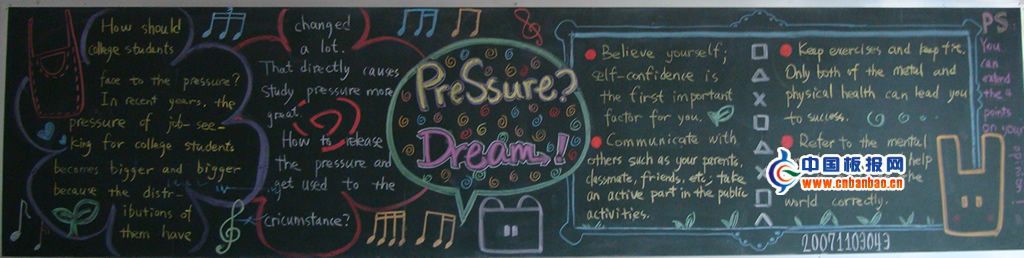 How should
college students
face to the pressure?
In recent years, the
pressure of job-see-
king for college students
becomes bigger and bigger
because the distr-
ibutions of
them have
changed
a lot.
That directly causes
study pressure more
great.
How to release
the pressure and
get used to the
cricumstance?
PreSsure?
Dream!
Believe yourself;
self-confidence is
the first important
factor for you.
Communicate with
others such as your parents,
classmate, friends, etc; take
an active part in the public
activities.
Keep exercises and keep fit.
Only both of the metal and
physical health can lead you
to success.
Refer to the mental
help
the
world correctly.
PS
You
can
extend
the 4
points
on your
20071103043
中国板报网
www.cnbanbao.cn